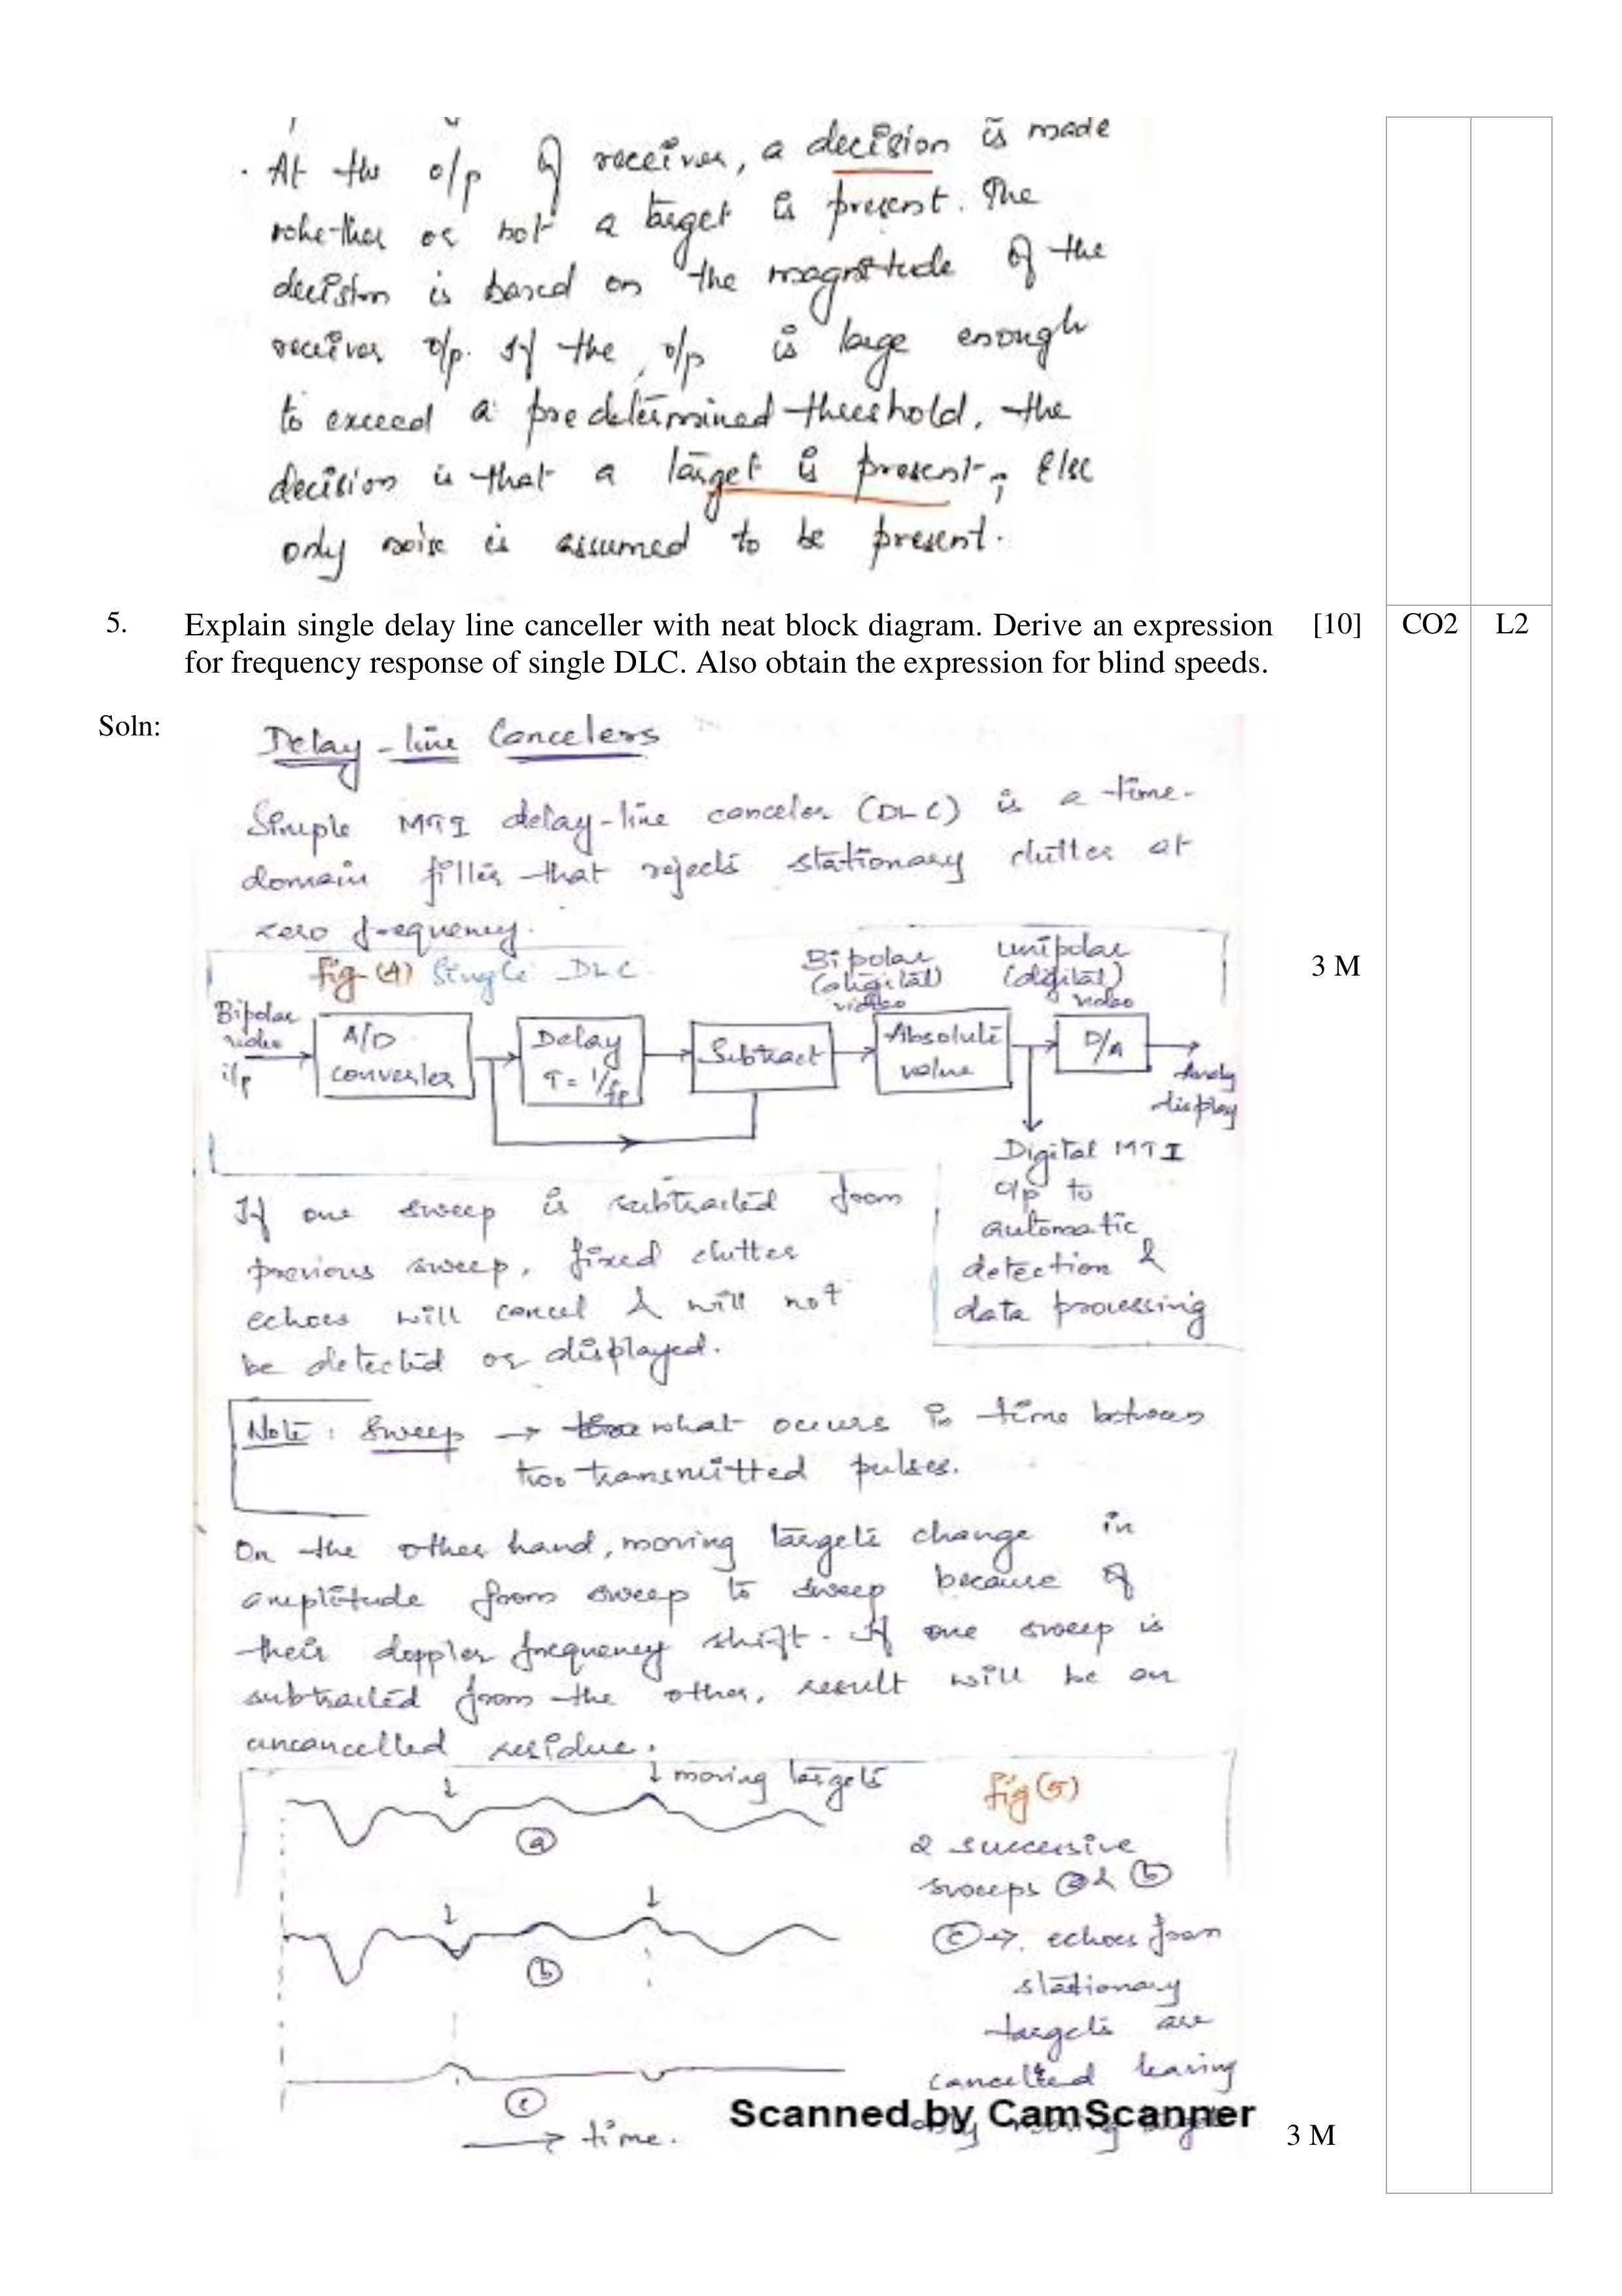 . At the o/p of receiver, a decision is made
whether or not a target is present. The
decision is based on the magnitude of the
receiver o/p. If the o/p is large enough
to exceed a predetermined threshold, the
decision is that a target is present; Else
only noise is assumed to be present.
5. Explain single delay line canceller with neat block diagram. Derive an expression [10] CO2 L2
for frequency response of single DLC. Also obtain the expression for blind speeds.
Soln:
Delay-line Cancelers
Simple MTI delay-line canceler (DLC) is a time-
domain filter that rejects stationary clutter at
zero frequency.
3 M
Fig (4) Single DLC
Bipolar video i/p
A/D converter
Delay T = 1/fp
Subtract
Bipolar (digital) video
Absolute value
unipolar (digital) video
D/A
display
Digital MTI
o/p to
automatic
detection &
data processing
If one sweep is subtracted from
previous sweep, fixed clutter
echoes will cancel & will not
be detected or displayed.
Note: Sweep → what occurs in time between
two transmitted pulses.
On the other hand, moving targets change in
amplitude from sweep to sweep because of
their doppler frequency shift. If one sweep is
subtracted from the other, result will be an
uncancelled residue.
↓ ↓ moving targets
a
Fig (5)
2 successive
sweeps a & b
↓ ↓
b
c → echoes from
stationary
targets are
cancelled leaving
only moving targets
c
→ time.
Scanned by CamScanner
3 M